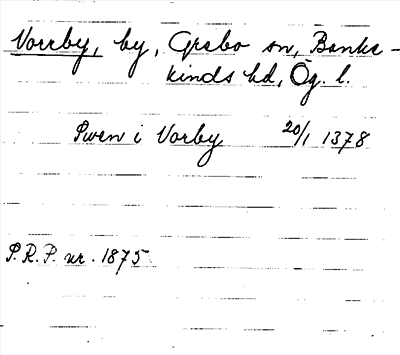 Vorrby, by, Grebo sn, Banke-
kinds hd, Ög. l.
Swen i Vorby 20/1 1378
S.R.P. nr. 1875